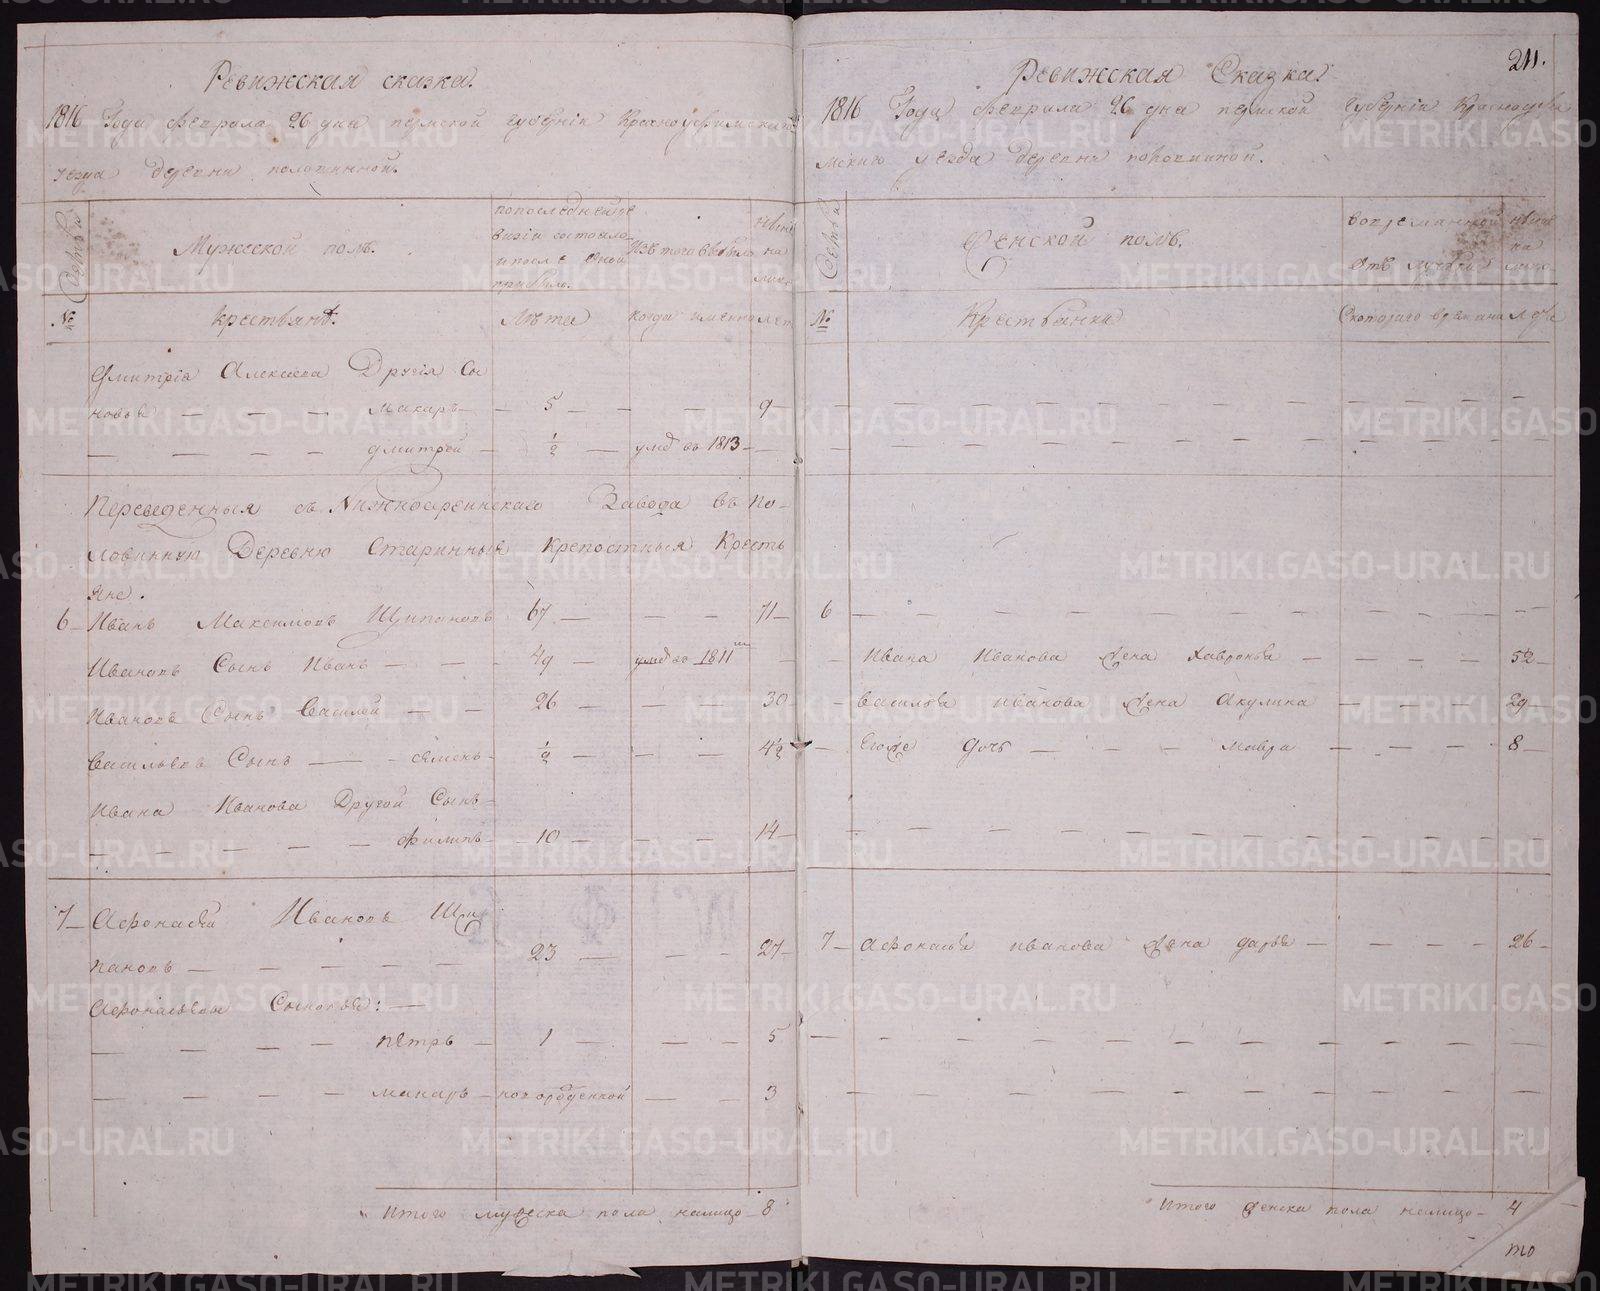 Ревижская сказка.
1816 Года Февраля 26 дня пермской губернiи Красноуфимскаго
уезда деревни половинной.
Семьи
Мужеской полъ.
попоследней ре
визiи состояло
и после оной
прибыло.
Изъ того выбыло
ныне
на
лицо
№
крестьянѣ.
Лѣта
когда именно
лет
Дмитрiя Алексеева Другiя Сы
новья — — — Макаръ — 5 — — — 9
— — — — дмитрей — 1/2 — умръ въ 1813 —
Переведенныя съ Нижносергинскаго Завода въ По-
ловинную Деревню Старинныя Крепостныя Кресть
яне.
6 Иванъ Максимовъ Щипановъ 67 — — — 71
Ивановъ Сынъ Иванъ — — — 49 — умръ въ 1811м —
Ивановъ Сынъ Василей — — 26 — — — 30
Васильевъ Сынъ — — Семенъ 1/2 — — — 4 1/2
Ивана Иванова Другой Сынъ
— — — — Филипъ 10 — — — 14
7 Афонасей Ивановъ Щи
пановъ — — — — — 23 — — — 27
Афонасьевы Сыновья: —
— — — — петръ — 1 — — — 5
— — — — макаръ — новорожденной — — 3
Итого мужеска пола налицо 8
211.
Ревижская Сказка
1816 Года Февраля 26 дня пермской губернiи Красноуфи
мскаго уезда деревни половинной.
Семьи
Женской полъ.
вовременной
отъ лучки
ныне
на
лицо
№
Крестьянки
Скотораго времяни
лѣта
6 — — — — — —
Ивана Иванова жена Хавронья — — — — 52
василья иванова жена Акулина — — — 29
Егоже дочь — — — мавра — — — 8
7 Афонасья иванова жена дарья — — — — 26
Итого женска пола налицо — 4
то
METRIKI.GASO-URAL.RU